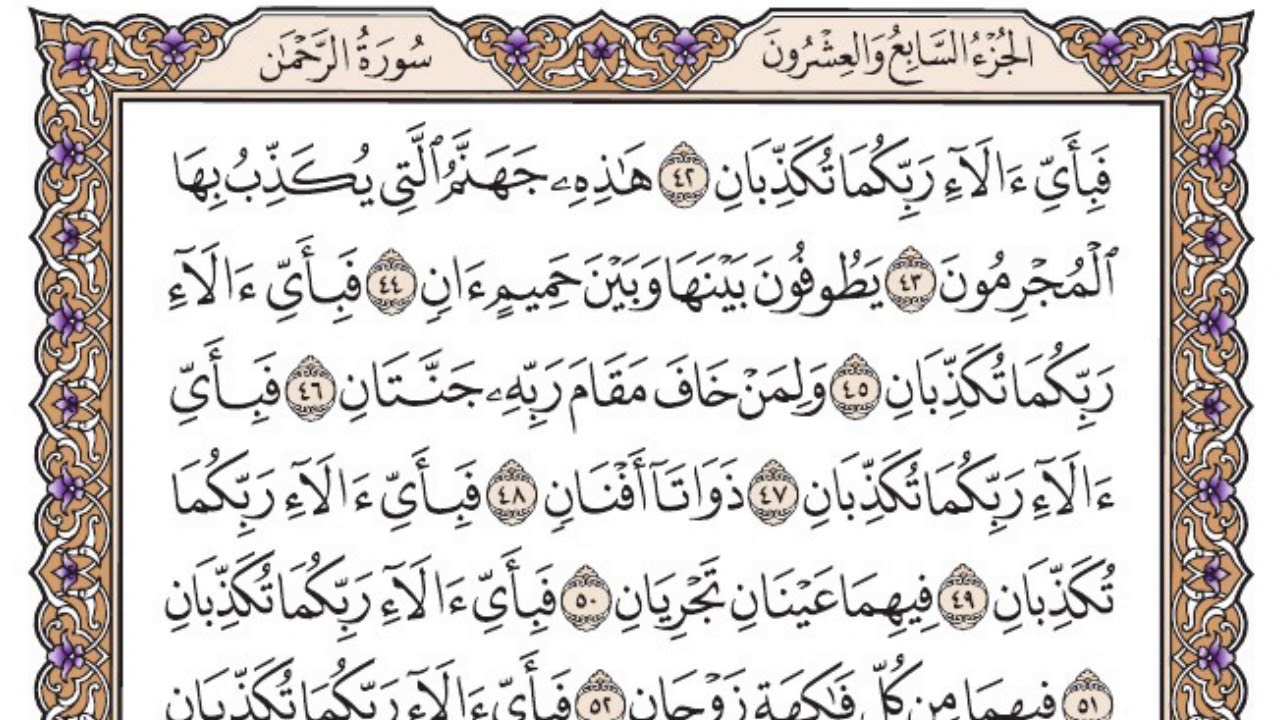 الجُزْءُ السَّابِعُ وَالعِشْرُونَ
سُورَةُ الرَّحْمَٰن
فَبِأَيِّ ءَالَآءِ رَبِّكُمَا تُكَذِّبَانِ ٤٢ هَٰذِهِۦ جَهَنَّمُ ٱلَّتِي يُكَذِّبُ بِهَا
ٱلْمُجْرِمُونَ ٤٣ يَطُوفُونَ بَيْنَهَا وَبَيْنَ حَمِيمٍ ءَانٍ ٤٤ فَبِأَيِّ ءَالَآءِ
رَبِّكُمَا تُكَذِّبَانِ ٤٥ وَلِمَنْ خَافَ مَقَامَ رَبِّهِۦ جَنَّتَانِ ٤٦ فَبِأَيِّ
ءَالَآءِ رَبِّكُمَا تُكَذِّبَانِ ٤٧ ذَوَاتَآ أَفْنَانٍ ٤٨ فَبِأَيِّ ءَالَآءِ رَبِّكُمَا
تُكَذِّبَانِ ٤٩ فِيهِمَا عَيْنَانِ تَجْرِيَانِ ٥٠ فَبِأَيِّ ءَالَآءِ رَبِّكُمَا تُكَذِّبَانِ
٥١ فِيهِمَا مِن كُلِّ فَٰكِهَةٍ زَوْجَانِ ٥٢ فَبِأَيِّ ءَالَآءِ رَبِّكُمَا تُكَذِّبَانِ